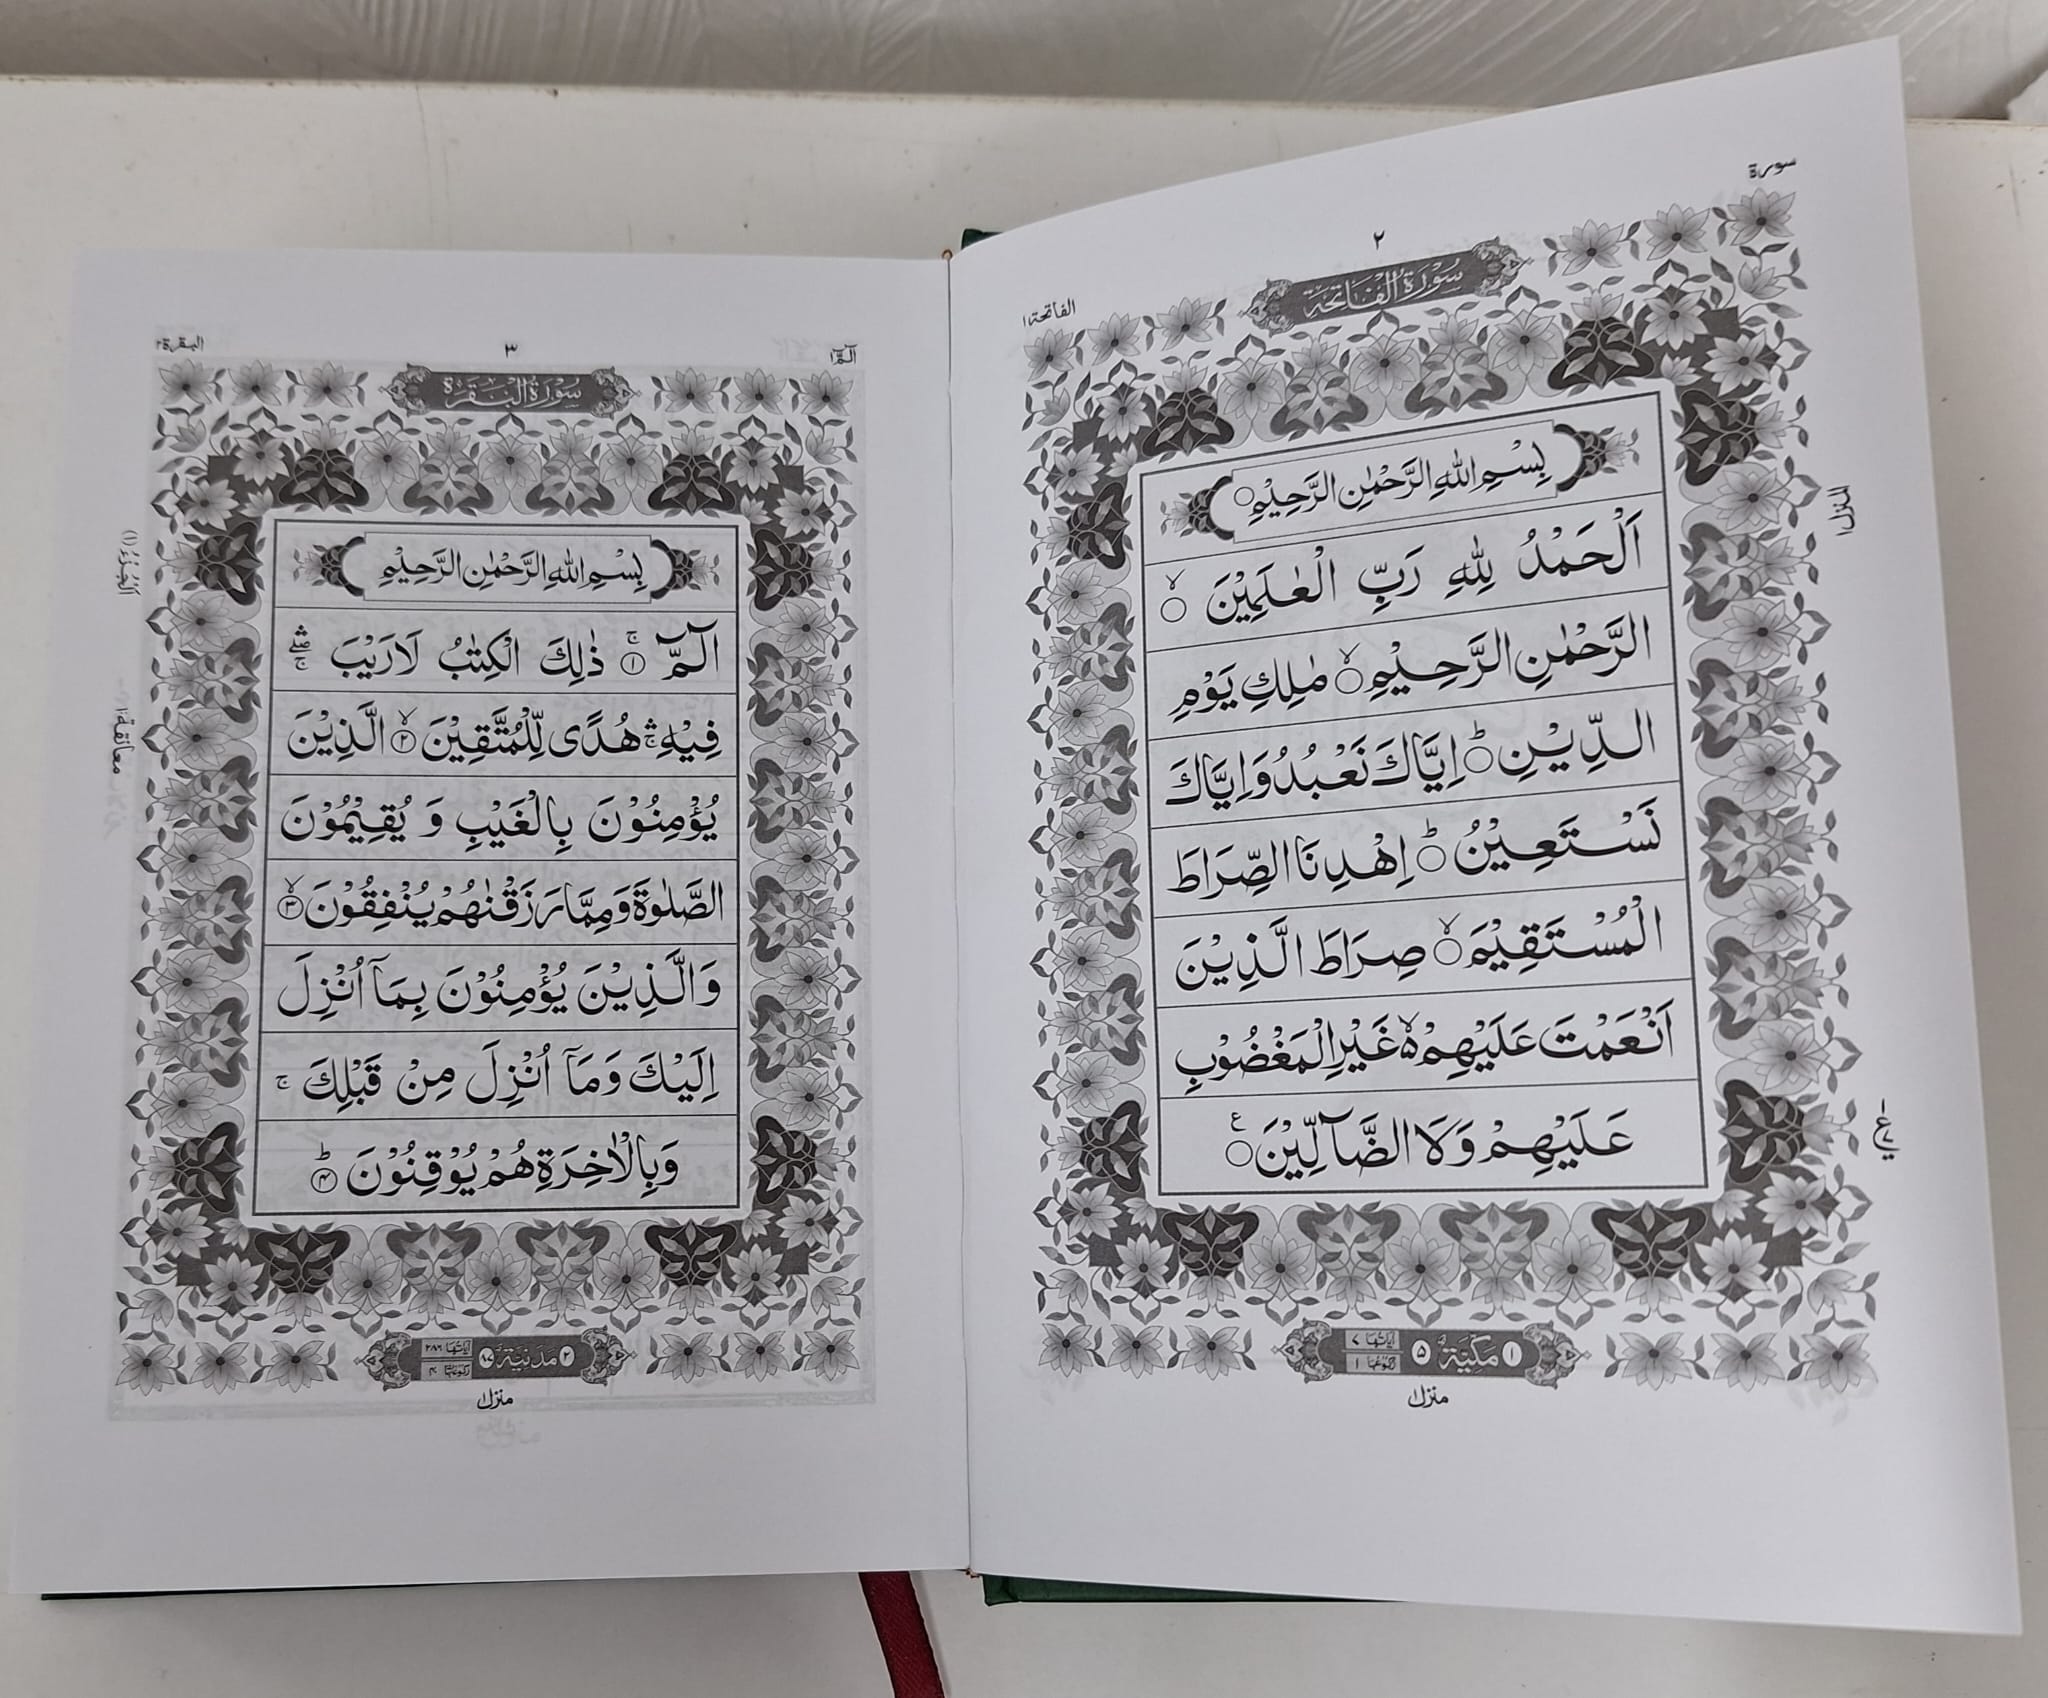 سورة
٢
الفاتحة ١
سُوْرَةُ الْفَاتِحَةِ
بِسْمِ اللهِ الرَّحْمٰنِ الرَّحِيْمِ ○
اَلْحَمْدُ لِلّٰهِ رَبِّ الْعٰلَمِيْنَ ○ۙ
الرَّحْمٰنِ الرَّحِيْمِ ○ۙ مٰلِكِ يَوْمِ
الدِّيْنِ ○ؕ اِيَّاكَ نَعْبُدُ وَاِيَّاكَ
نَسْتَعِيْنُ ○ؕ اِهْدِنَا الصِّرَاطَ
الْمُسْتَقِيْمَ ○ۙ صِرَاطَ الَّذِيْنَ
اَنْعَمْتَ عَلَيْهِمْ ۙ۵ غَيْرِ الْمَغْضُوْبِ
عَلَيْهِمْ وَلَا الضَّآلِّيْنَ ○ع
المنزل ١
١ مَكِّيَّةٌ ٥ اٰيَاتُهَا ٧ رُكُوْعُهَا ١
منزل ١
الٓمّٓ ١
٣
البقرة ٢
سُوْرَةُ الْبَقَرَةِ
بِسْمِ اللهِ الرَّحْمٰنِ الرَّحِيْمِ
الٓمّٓ ۚ﴿١﴾ ذٰلِكَ الْكِتٰبُ لَا رَيْبَ ۛۖۚ
فِيْهِ ۛۚ هُدًى لِّلْمُتَّقِيْنَ ۙ﴿٢﴾ الَّذِيْنَ
يُؤْمِنُوْنَ بِالْغَيْبِ وَ يُقِيْمُوْنَ
الصَّلٰوةَ وَمِمَّا رَزَقْنٰهُمْ يُنْفِقُوْنَ ۙ﴿٣﴾
وَالَّذِيْنَ يُؤْمِنُوْنَ بِمَآ اُنْزِلَ
اِلَيْكَ وَمَآ اُنْزِلَ مِنْ قَبْلِكَ ۚ
وَبِالْاٰخِرَةِ هُمْ يُوْقِنُوْنَ ؕ﴿۴﴾
اَلْجُزْءُ (١)
معانقة ١
٢ مَدَنِيَّةٌ ٨٧ اٰيَاتُهَا ٢٨٦ رُكُوْعُهَا ۴٠
منزل ١